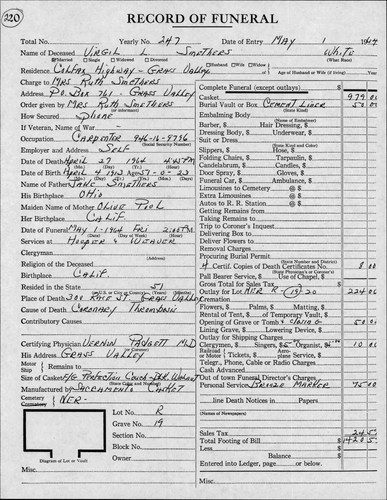 220
RECORD OF FUNERAL
Total No. Yearly No. 247 Date of Entry MAY 1 1964
Name of Deceased VIRGIL L SMETHERS White
Married Single Widowed Divorced (What Race)
Residence COLFAX HIGHWAY - GRASS VALLEY Husband Wife Widow of Age of Husband or Wife (if living) Year
Charge to MRS RUTH SMETHERS
Address P.O. BOX 761 - GRASS VALLEY
Order given by MRS RUTH SMETHERS
How Secured Phone
If Veteran, Name of War
Occupation CARPENTER
(Social Security Number)
Employer and Address SELF
Date of Death APRIL 27 1964 4:45 PM
Date of Birth APRIL 4 1912 Age 52-0-23
Name of Father JAKE SMETHERS
His Birthplace OHIO
Maiden Name of Mother OLIVE
Her Birthplace CALIF.
Date of Funeral MAY 1-1964 FRI 2:00 PM
Services at HOOPER & WEAVER
Clergyman
(Address)
Religion of the Deceased
Birthplace CALIF.
Resided in the State 51
Place of Death GRASS VALLEY
Cause of Death CORONARY THROMBOSIS
Contributory Causes
Certifying Physician VERNON PADGETT MD
His Address GRASS VALLEY
Motor Ship Remains to
Size of Casket 6/6 PERFECTION COUCH
(State Color and Number)
Manufactured by SACRAMENTO CASKET
Cemetery Crematory NER-
Lot No. R
Grave No. 19
Section No.
Block No.
Owner
Diagram of Lot or Vault
Misc.
Complete Funeral (except outlays) $
Casket 979 00
Burial Vault or Box CEMENT LINER 50 00
Embalming Body
(Name of Embalmer)
Barber, $ Hair Dressing, $
Dressing Body, $ Underwear, $
Suit or Dress
(State Kind and Color)
Slippers, $ Hose, $
Folding Chairs, $ Tarpaulin, $
Candelabrum, $ Candles, $
Door Spray, $ Gloves, $
Funeral Car, $ Ambulance, $
Limousines to Cemetery @ $
Extra Limousines @ $
Autos to R. R. Station @ $
Getting Remains from
Taking Remains to
Trip to Coroner's Inquest
Delivering Box to
Deliver Flowers to
Removal Charges
Procuring Burial Permit
(State Number and District)
4 Certif. Copies of Death Certificates No. 8 00
(State Physician's or Coroner's)
Pall Bearer Service, $ Use of Chapel, $
Gross Total for Sales Tax
Outlay for Lot NER R-19 224 00
Cremation
Flowers, $ Palms, $ Matting, $
Rental of Tent, $ of Temporary Vault, $
Opening of Grave or Tomb 50 00
Lining Grave, $ Lowering Device, $
Outlay for Shipping Charges
Clergymen, $ Singers, $ Organist, $ 10 00
Railroad or Motor Tickets, $ Aeroplane Service, $
Telegr., Phone, Cable or Radio Charges
Cash Advanced
Out of Town Funeral Director's Charge
Personal Service BRONZE MARKER 75 00
line Death Notices in Papers
(Name of Newspapers)
Sales Tax
Total Footing of Bill $
Less
Balance $
Entered into Ledger, page or below.
Misc.